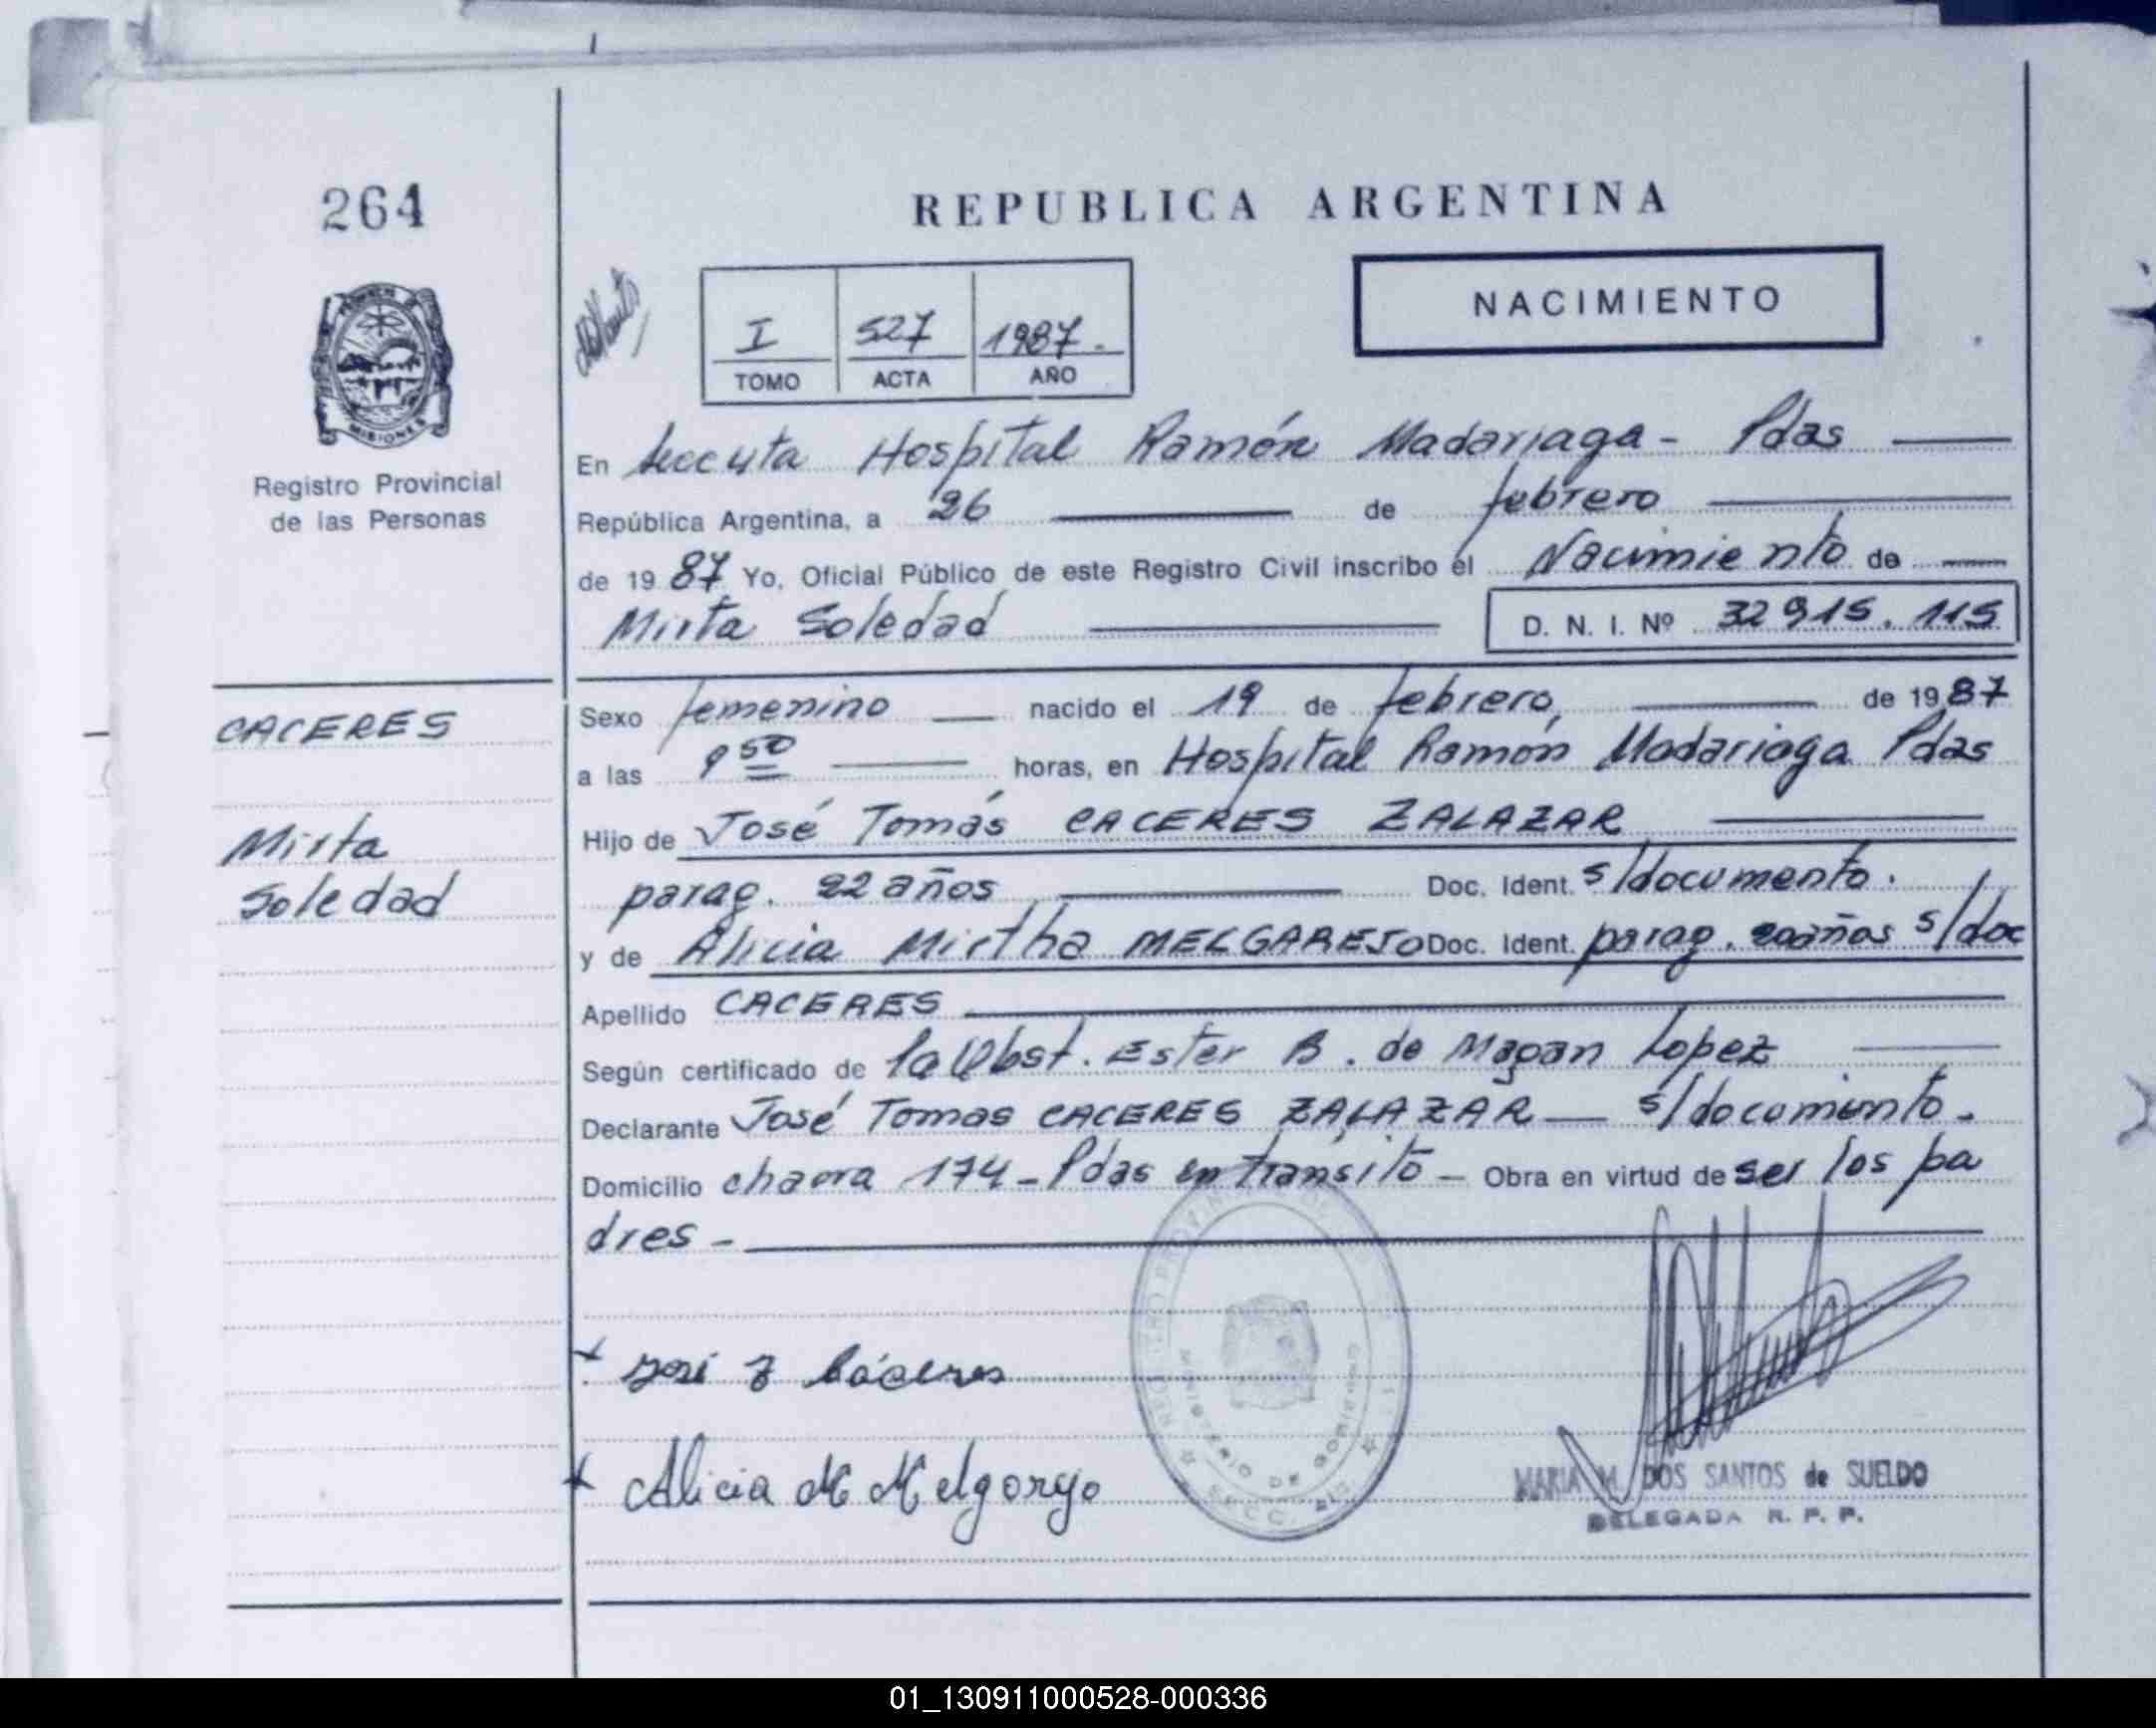 264
REPUBLICA ARGENTINA
NACIMIENTO
I 527 1987.
TOMO ACTA AÑO
MISIONES
Registro Provincial
de las Personas
En Hospital Ramón Madariaga - Pdas
República Argentina, a 26 de febrero
de 1987 Yo, Oficial Público de este Registro Civil inscribo el Nacimiento de
Mirta Soledad D. N. I. Nº 32 915.115
CACERES
Mirta
Soledad
Sexo femenino nacido el 19 de febrero, de 1987
a las 9 50 horas, en Hospital Ramón Madariaga Pdas
Hijo de José Tomás CACERES ZALAZAR
parag. 22 años Doc. Ident. s/documento.
y de Alicia Mirtha MELGAREJO Doc. Ident. parag. 20 años s/doc
Apellido CACERES
Según certificado de la Obst. Ester B. de Magan Lopez
Declarante José Tomas CACERES ZALAZAR — s/documento.
Domicilio chacra 174 - Pdas en transito - Obra en virtud de ser los pa
dres -
José T Cáceres
Alicia M Melgarejo
REGISTRO PROVINCIAL
MINISTERIO DE GOBIERNO
MARIA M. DOS SANTOS de SUELDO
DELEGADA R. P. P.
01_130911000528-000336